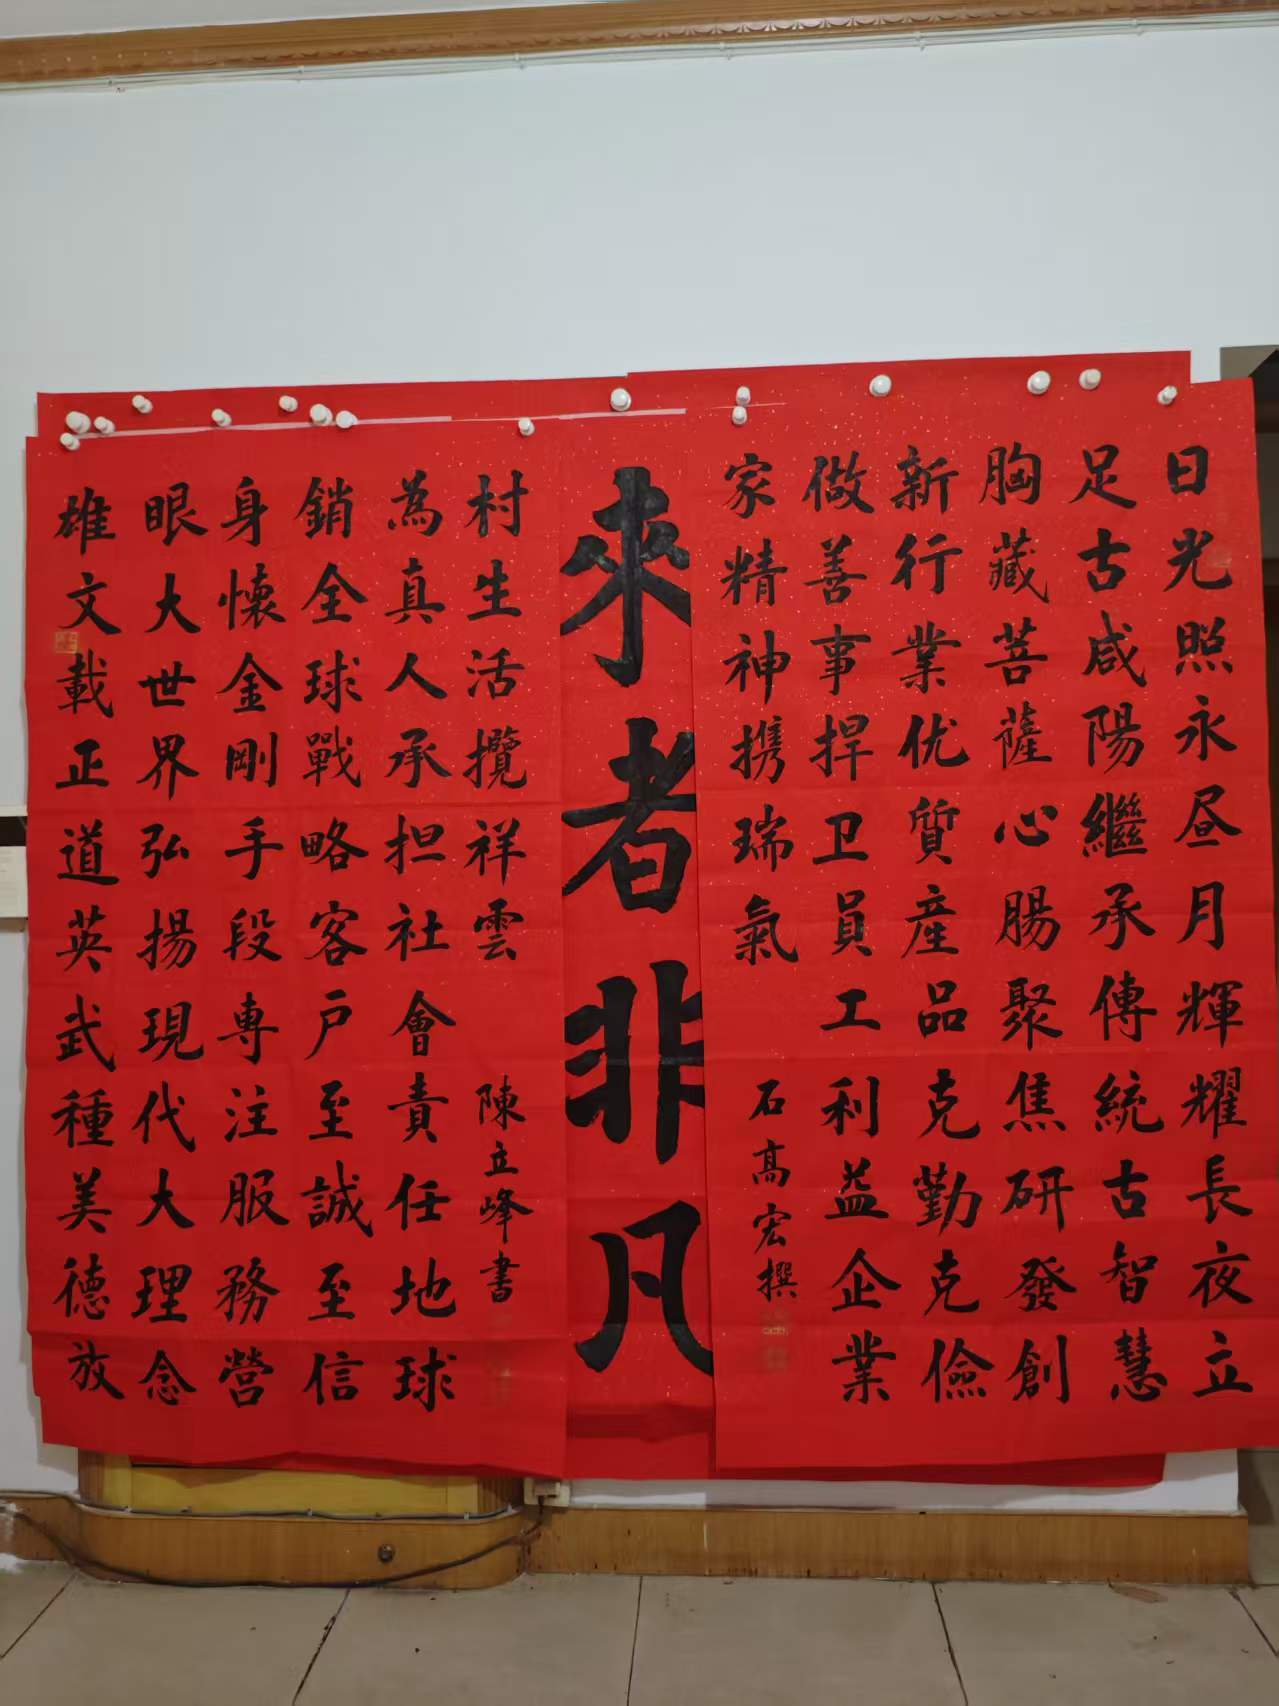 日光照永昼月輝耀長夜立
足古咸陽繼承傳統古智慧
胸藏菩薩心腸聚焦研發創
新行業优質産品克勤克儉
做善事捍卫員工利益企業
家精神携瑞氣
石高宏撰
來者非凡
雄文載正道英武種美德放
眼大世界弘揚現代大理念
身懷金剛手段專注服務營
銷全球戰略客户至誠至信
為真人承担社會責任地球
村生活攬祥雲
陳立峰書